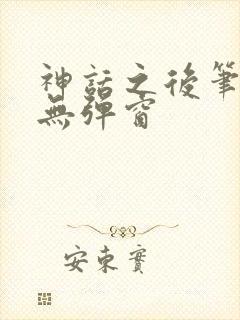 神話之後筆
無彈窗
安東實